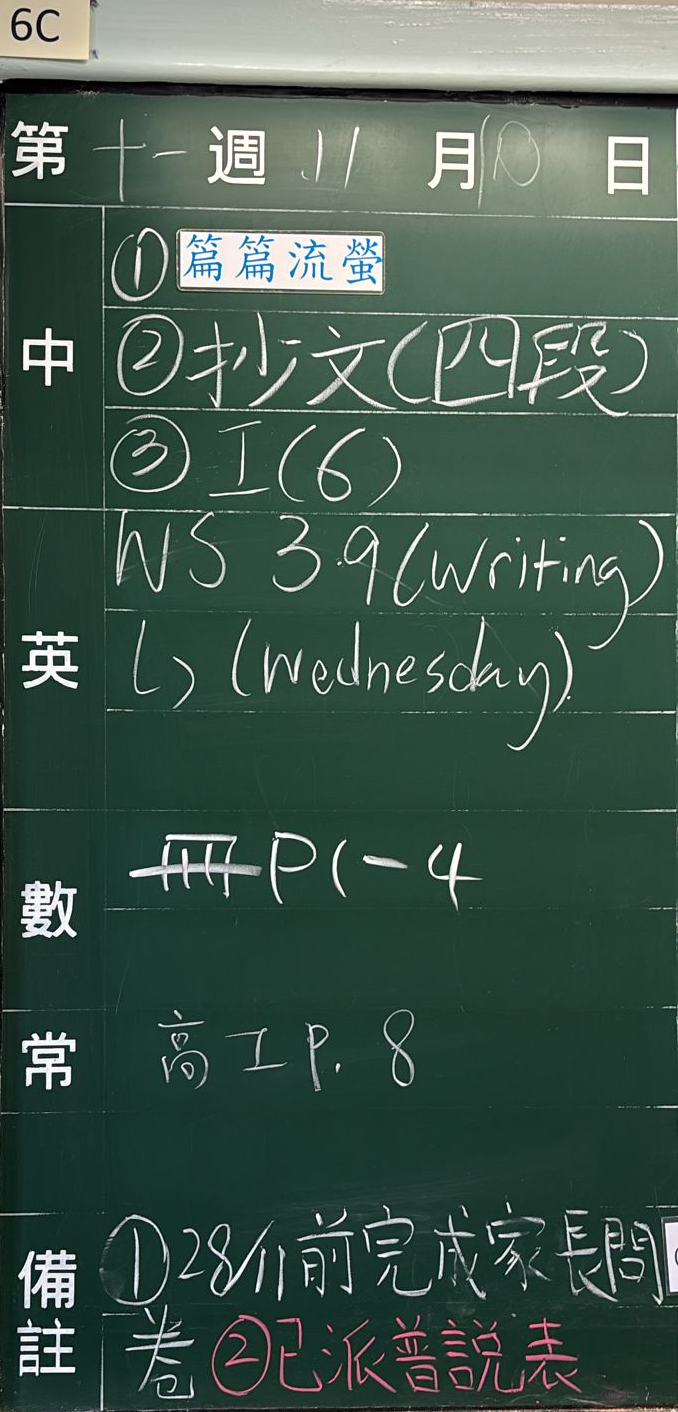 6C
第十一週 11月10日
中
①篇篇流螢
②抄文(四段)
③工(6)
英
WS 3.9(writing)
↳(Wednesday)
數
冊P1-4
常
高工P.8
備註
①28/11前完成家長問
卷②已派普說表